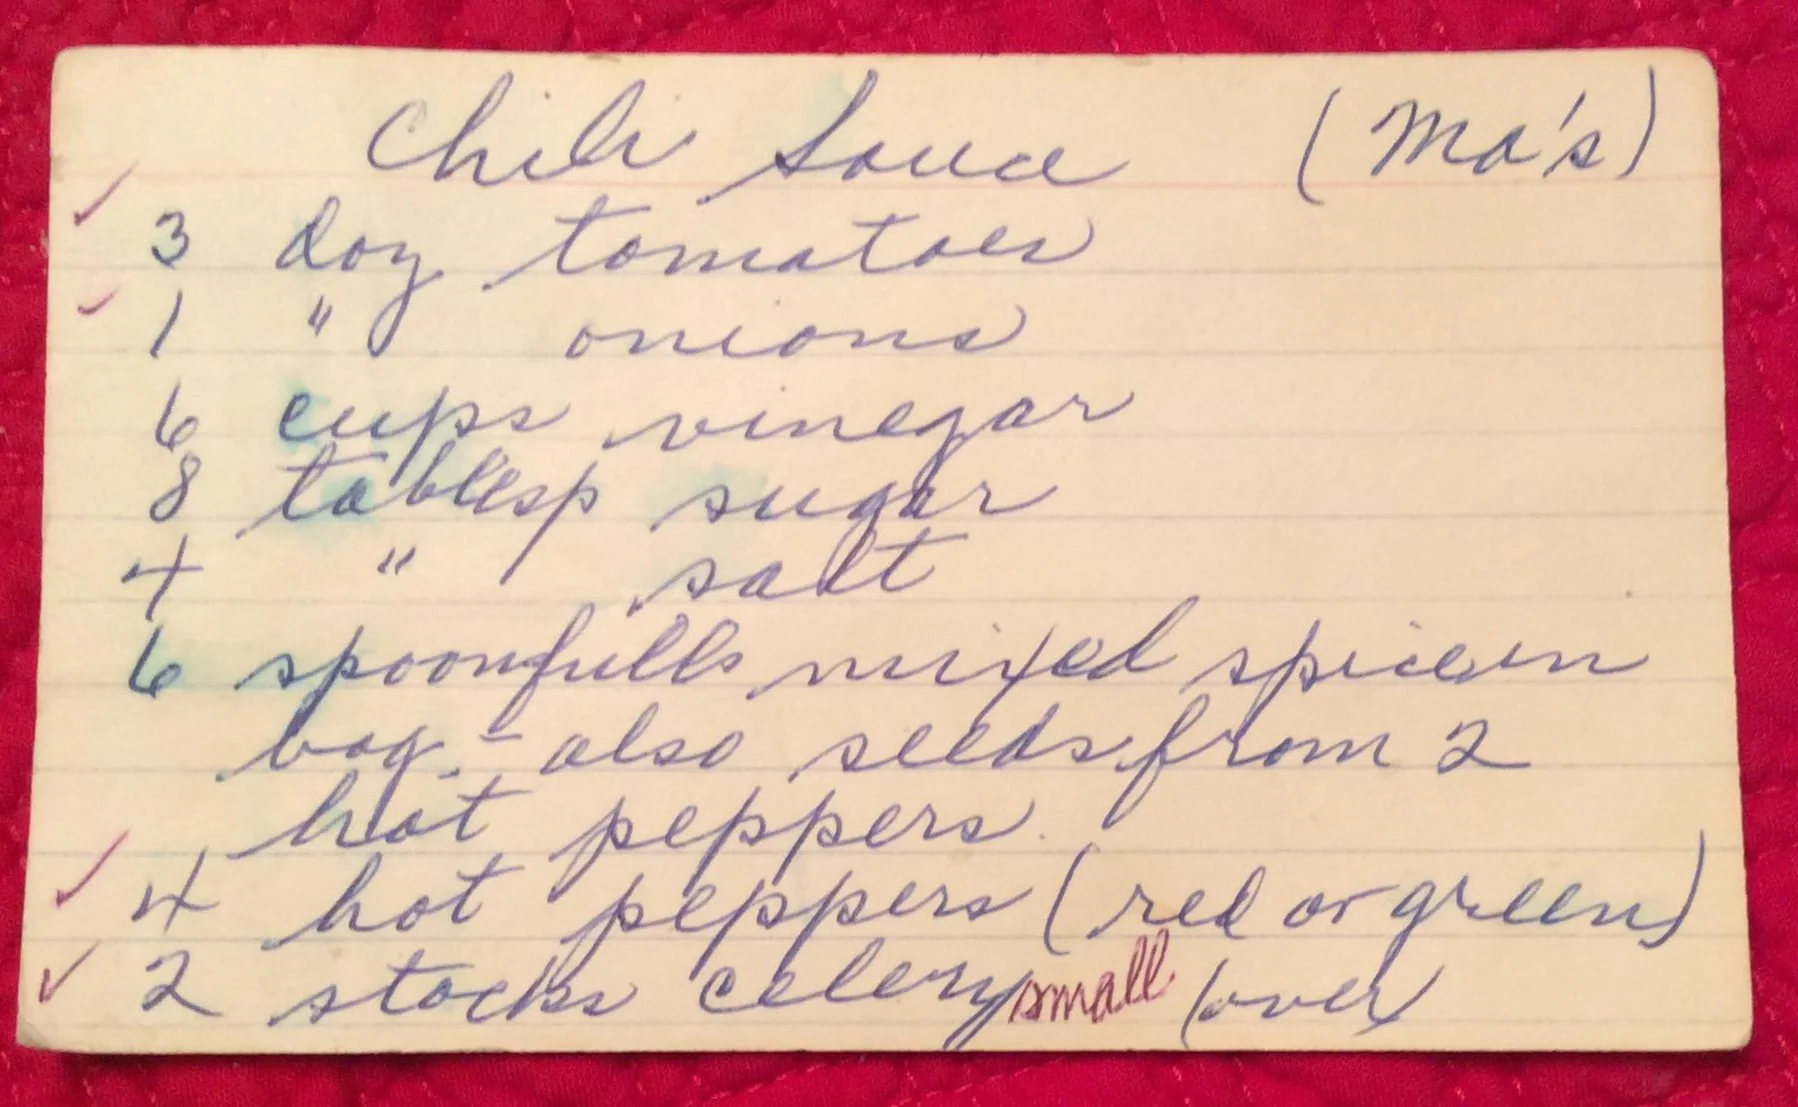 Chili Sauce (Ma's)
3 doz tomatoes
1 " onions
6 cups vinegar
8 tablesp sugar
4 " salt
6 spoonfulls mixed spice in
bag - also seeds from 2
hot peppers.
4 hot peppers (red or green)
2 stocks celery small (over